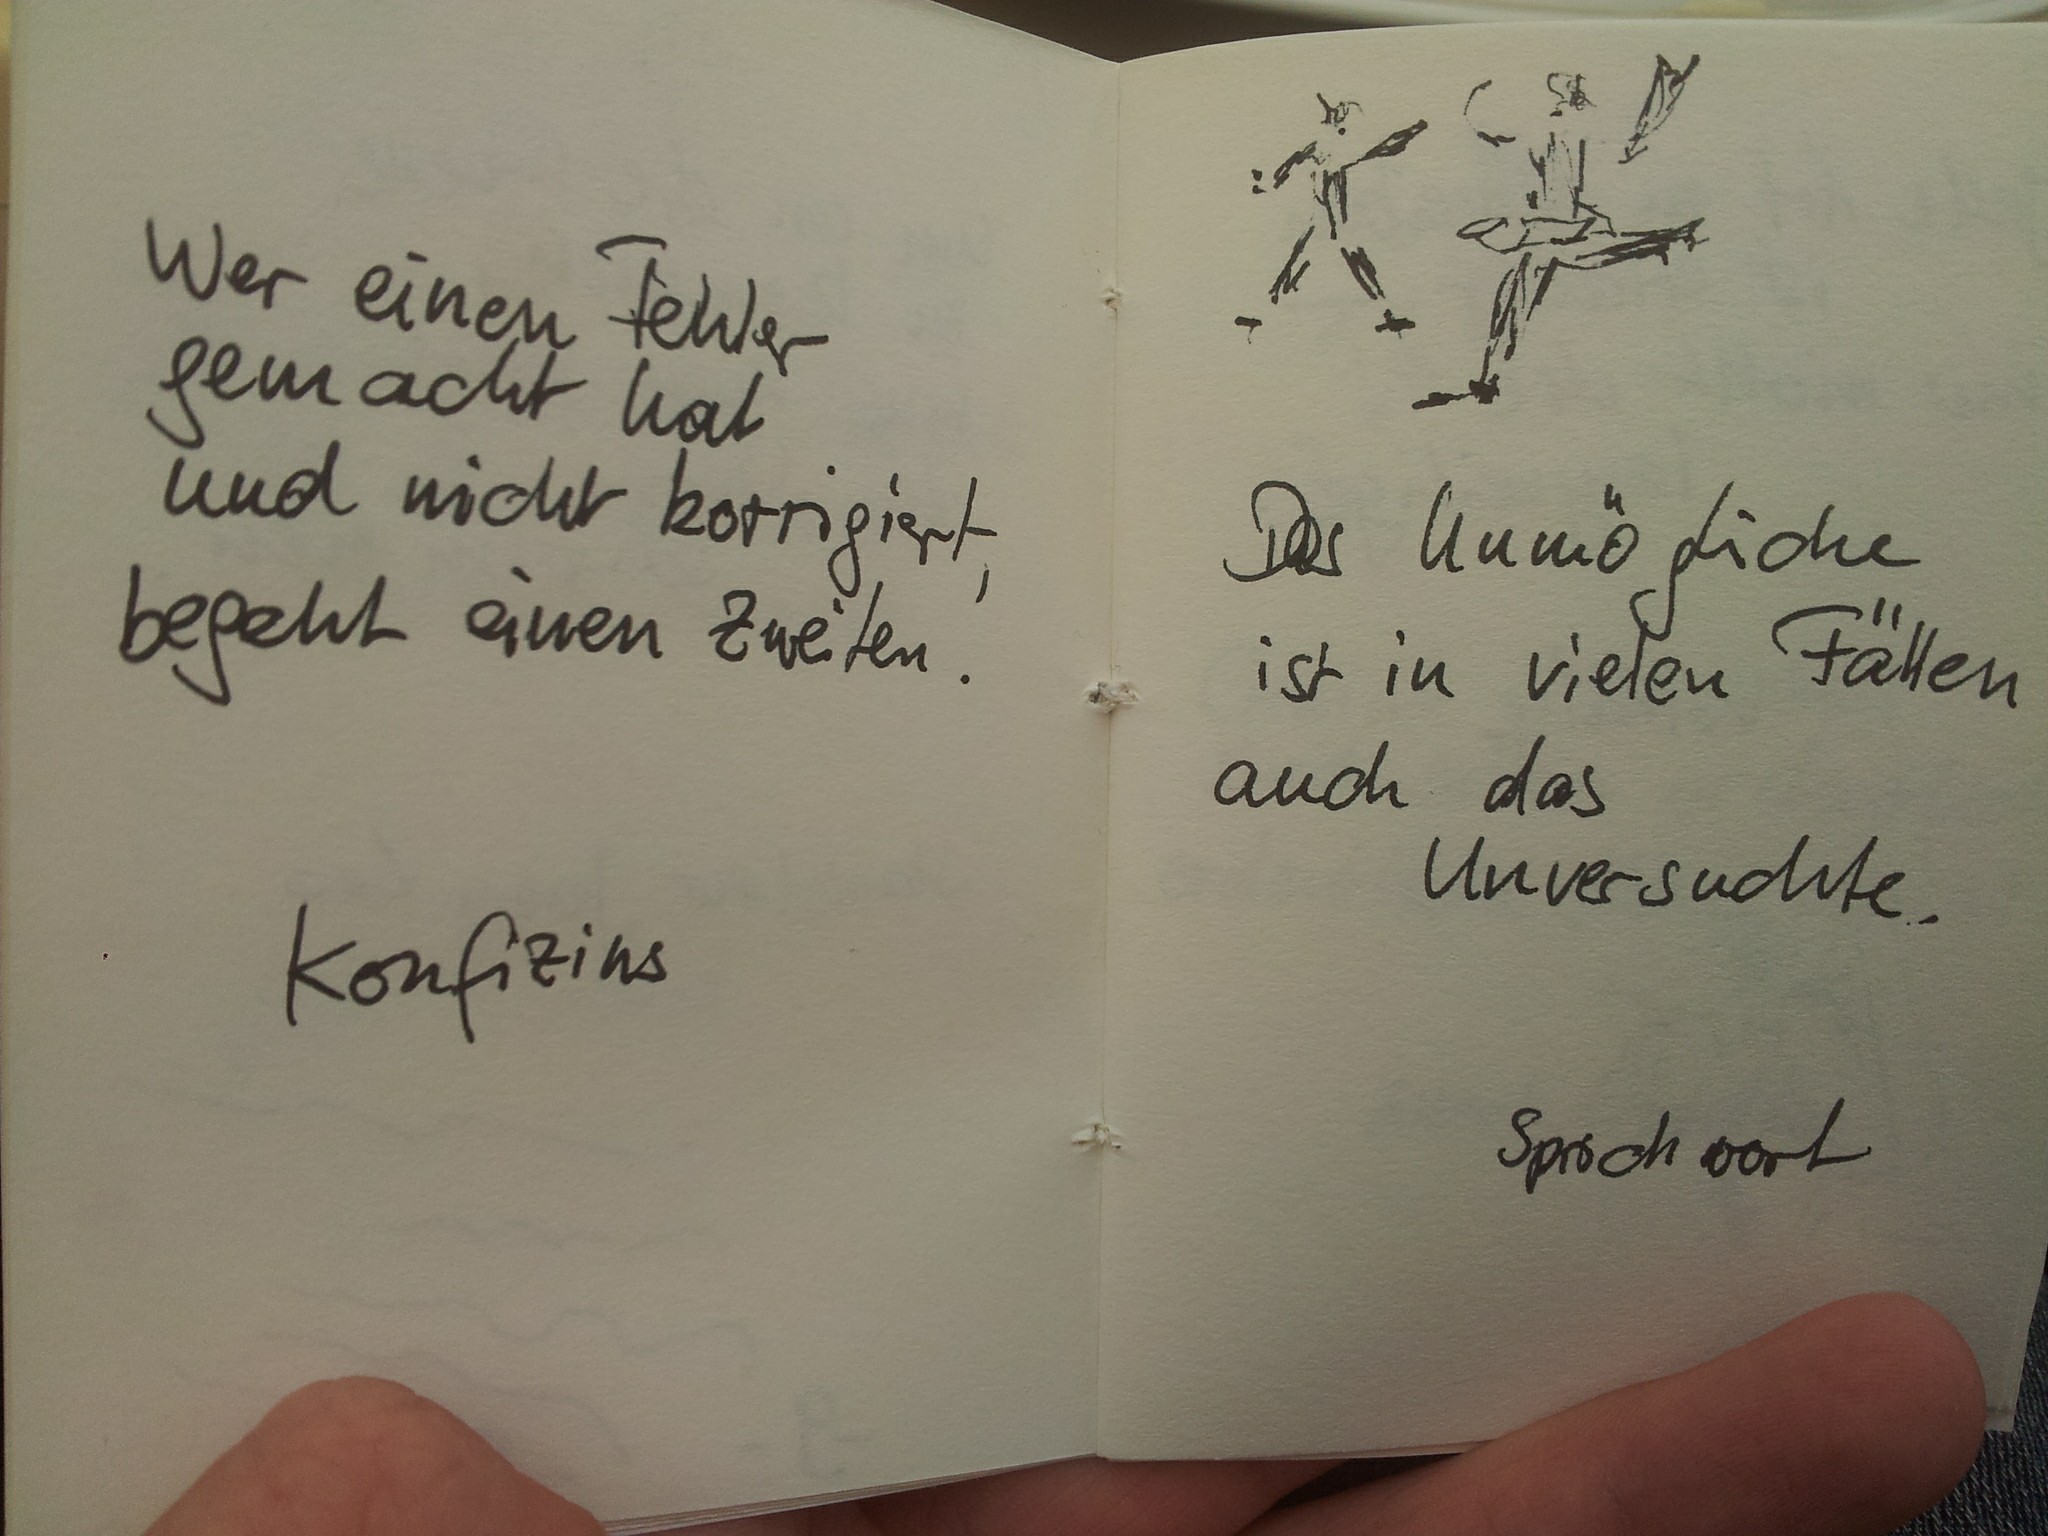 Wer einen Fehler
gemacht hat
und nicht korrigiert,
begeht einen Zweiten.
Konfizius
Das Unmögliche
ist in vielen Fällen
auch das
Unversuchte.
Sprichwort